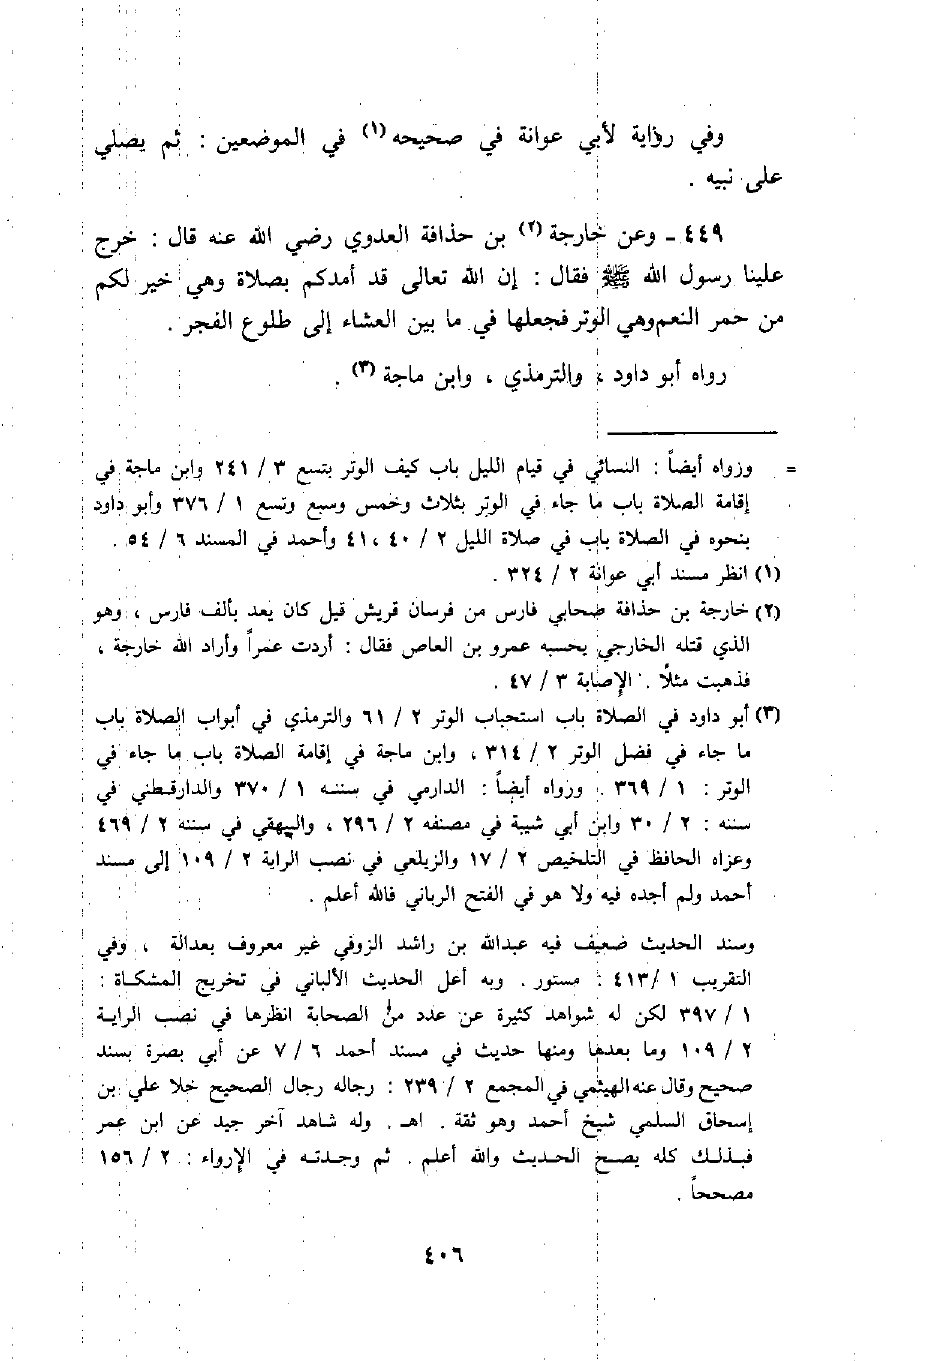 وفي رواية لأبي عوانة في صحيحه (١) في الموضعين : ثم يصلي
على نبيه .
٤٤٩ - وعن خارجة (٢) بن حذافة العدوي رضي الله عنه قال : خرج
علينا رسول الله ﷺ فقال : إن الله تعالى قد أمدكم بصلاة وهي خير لكم
من حمر النعم وهي الوتر فجعلها في ما بين العشاء إلى طلوع الفجر .
رواه أبو داود ، والترمذي ، وابن ماجة (٣) .
= ورواه أيضاً : النسائي في قيام الليل باب كيف الوتر بتسع ٣ / ٢٤١ وابن ماجة في
إقامة الصلاة باب ما جاء في الوتر بثلاث وخمس وسبع وتسع ١ / ٣٧٦ وأبو داود
بنحوه في الصلاة باب في صلاة الليل ٢ / ٤٠ ، ٤١ وأحمد في المسند ٦ / ٥٤ .
(١) انظر مسند أبي عوانة ٢ / ٣٢٤ .
(٢) خارجة بن حذافة صحابي فارس من فرسان قريش قيل كان يعد بألف فارس ، وهو
الذي قتله الخارجي يحسبه عمرو بن العاص فقال : أردت عمراً وأراد الله خارجة ،
فذهبت مثلًا . الإصابة ٣ / ٤٧ .
(٣) أبو داود في الصلاة باب استحباب الوتر ٢ / ٦١ والترمذي في أبواب الصلاة باب
ما جاء في فضل الوتر ٢ / ٣١٤ ، وابن ماجة في إقامة الصلاة باب ما جاء في
الوتر : ١ / ٣٦٩ . ورواه أيضاً : الدارمي في سننه ١ / ٣٧٠ والدارقطني في
سننه : ٢ / ٣٠ وابن أبي شيبة في مصنفه ٢ / ٢٩٦ ، والبيهقي في سننه ٢ / ٤٦٩
وعزاه الحافظ في التلخيص ٢ / ١٧ والزيلعي في نصب الراية ٢ / ١٠٩ إلى مسند
أحمد ولم أجده فيه ولا هو في الفتح الرباني فالله أعلم .
وسند الحديث ضعيف فيه عبدالله بن راشد الزوفي غير معروف بعدالة ، وفي
التقريب ١ / ٤١٣ : مستور . وبه أعل الحديث الألباني في تخريج المشكاة :
١ / ٣٩٧ لكن له شواهد كثيرة عن عدد من الصحابة انظرها في نصب الراية
٢ / ١٠٩ وما بعدها ومنها حديث في مسند أحمد ٦ / ٧ عن أبي بصرة بسند
صحيح وقال عنه الهيثمي في المجمع ٢ / ٢٣٩ : رجاله رجال الصحيح خلا علي بن
إسحاق السلمي شيخ أحمد وهو ثقة . اهـ . وله شاهد آخر جيد عن ابن عمر
فبذلك كله يصح الحديث والله أعلم . ثم وجدته في الإرواء : ٢ / ١٥٦
مصححاً .
٤٠٦